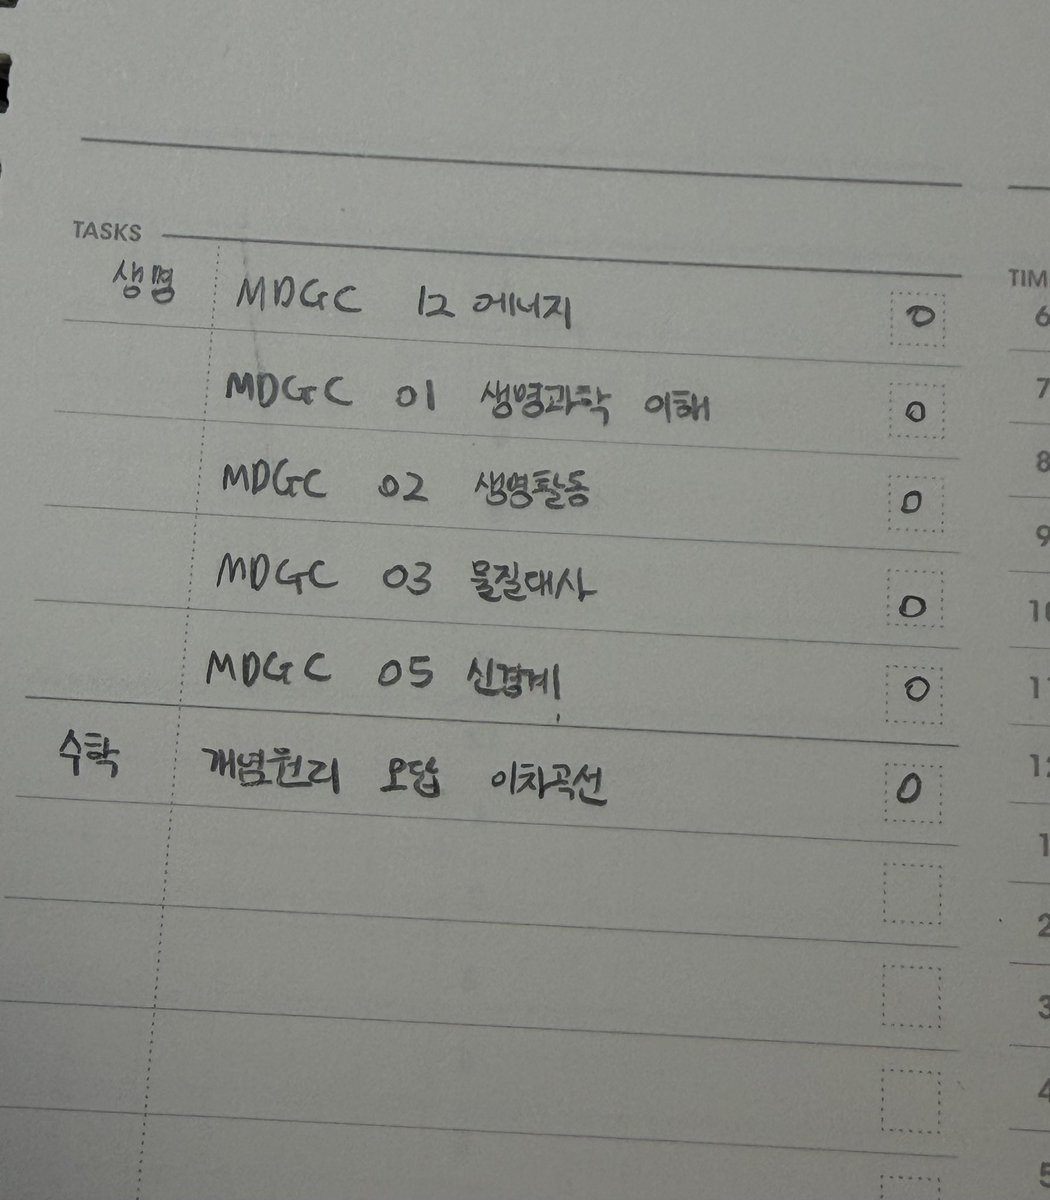 TASKS
생명 MDGC 12 에너지 O
MDGC 01 생명과학 이해 O
MDGC 02 생명활동 O
MDGC 03 물질대사 O
MDGC 05 신경계 O
수학 개념원리 오답 이차곡선 O
TIM
6
7
8
9
10
11
12
1
2
3
4
5